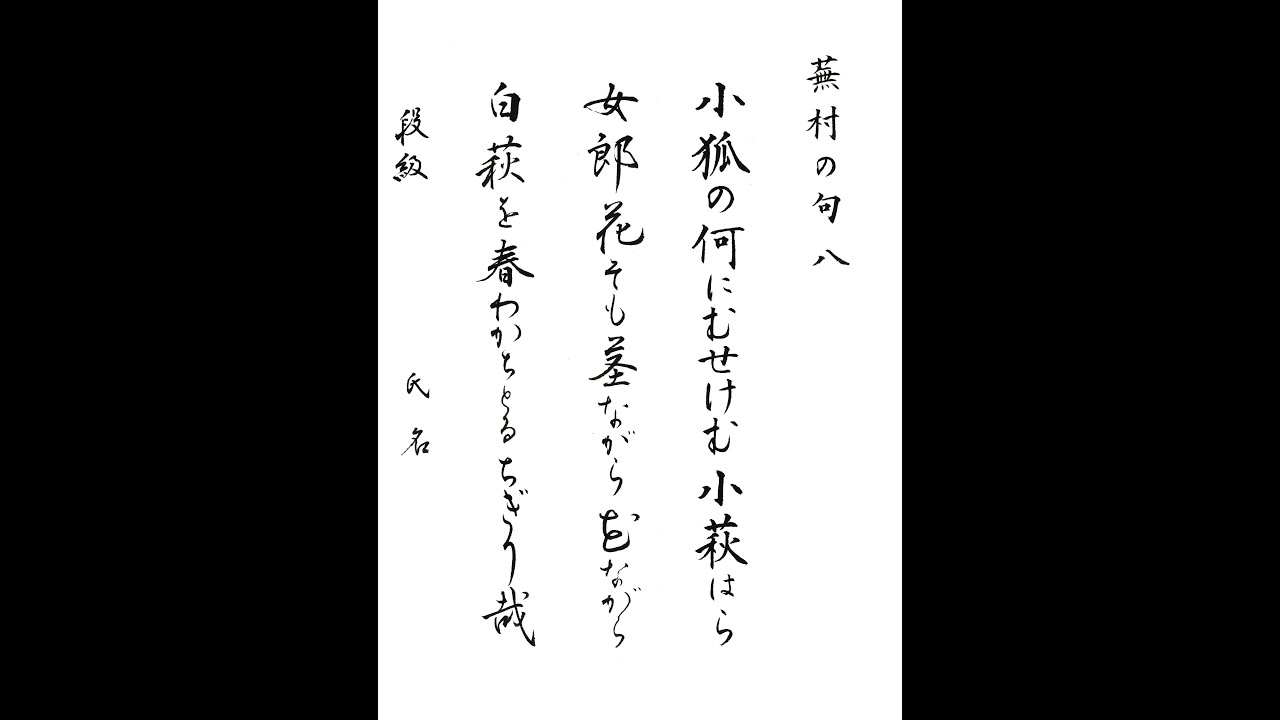 蕪村の句八
小狐の何にむせけむ小萩はら
女郎花そも茎ながら花ながら
白萩を春わかちとるちぎり哉
段級 氏名